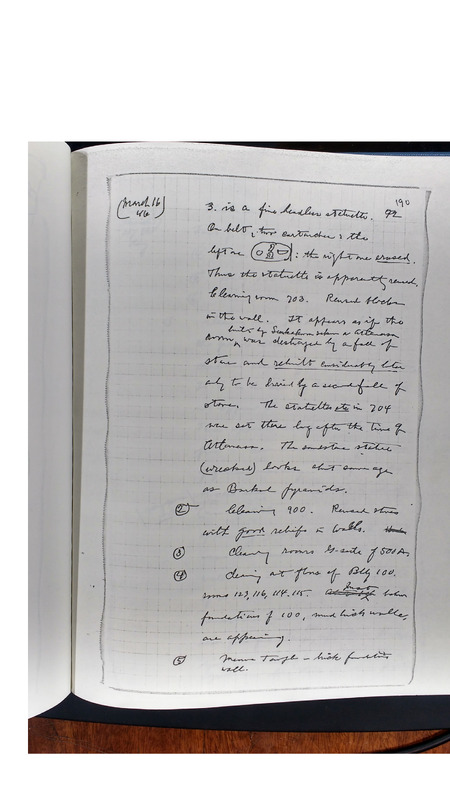 190
(March 16
3. is a fine headless statuette.
On belt, two cartouches: the
left one : the right one erased.
Thus the statuette is apparently reused.
Clearing room 703. Reused blocks
in the wall. It appears as if the
built by Senkamanseken or Artenasen
room, was destroyed by a fall of
stone and rebuilt considerably later
only to be buried by a second fall of
stones. The statuettes etc in 704
were set there long after the time of
Artenasen. The sandstone statue
(wreathed) looks about same age
as Barkal pyramids.
② Clearing 900. Reused stones
with good reliefs in walls.
③ Clearing rooms S-side of 500
④ clearing at floor of Bldg 100.
rooms 123, 116, 114, 115. below
foundations of 100, mud brick walls,
are appearing.
⑤ Temple - brick foundation
wall.